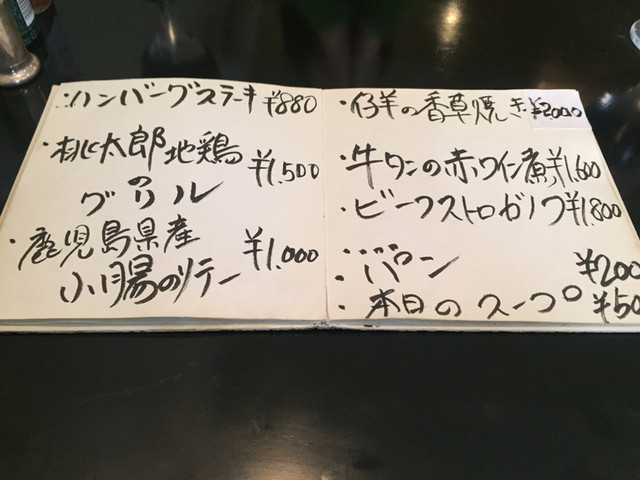 ・ハンバーグステーキ ¥880
・桃太郎地鶏
の ¥1,500
グリル
・鹿児島県産
小腸のソテー ¥1,000
・仔羊の香草焼き ¥2000
・牛タンの赤ワイン煮 ¥1,600
・ビーフストロガノフ ¥1,800
・パン ¥200
・本日のスープ ¥50